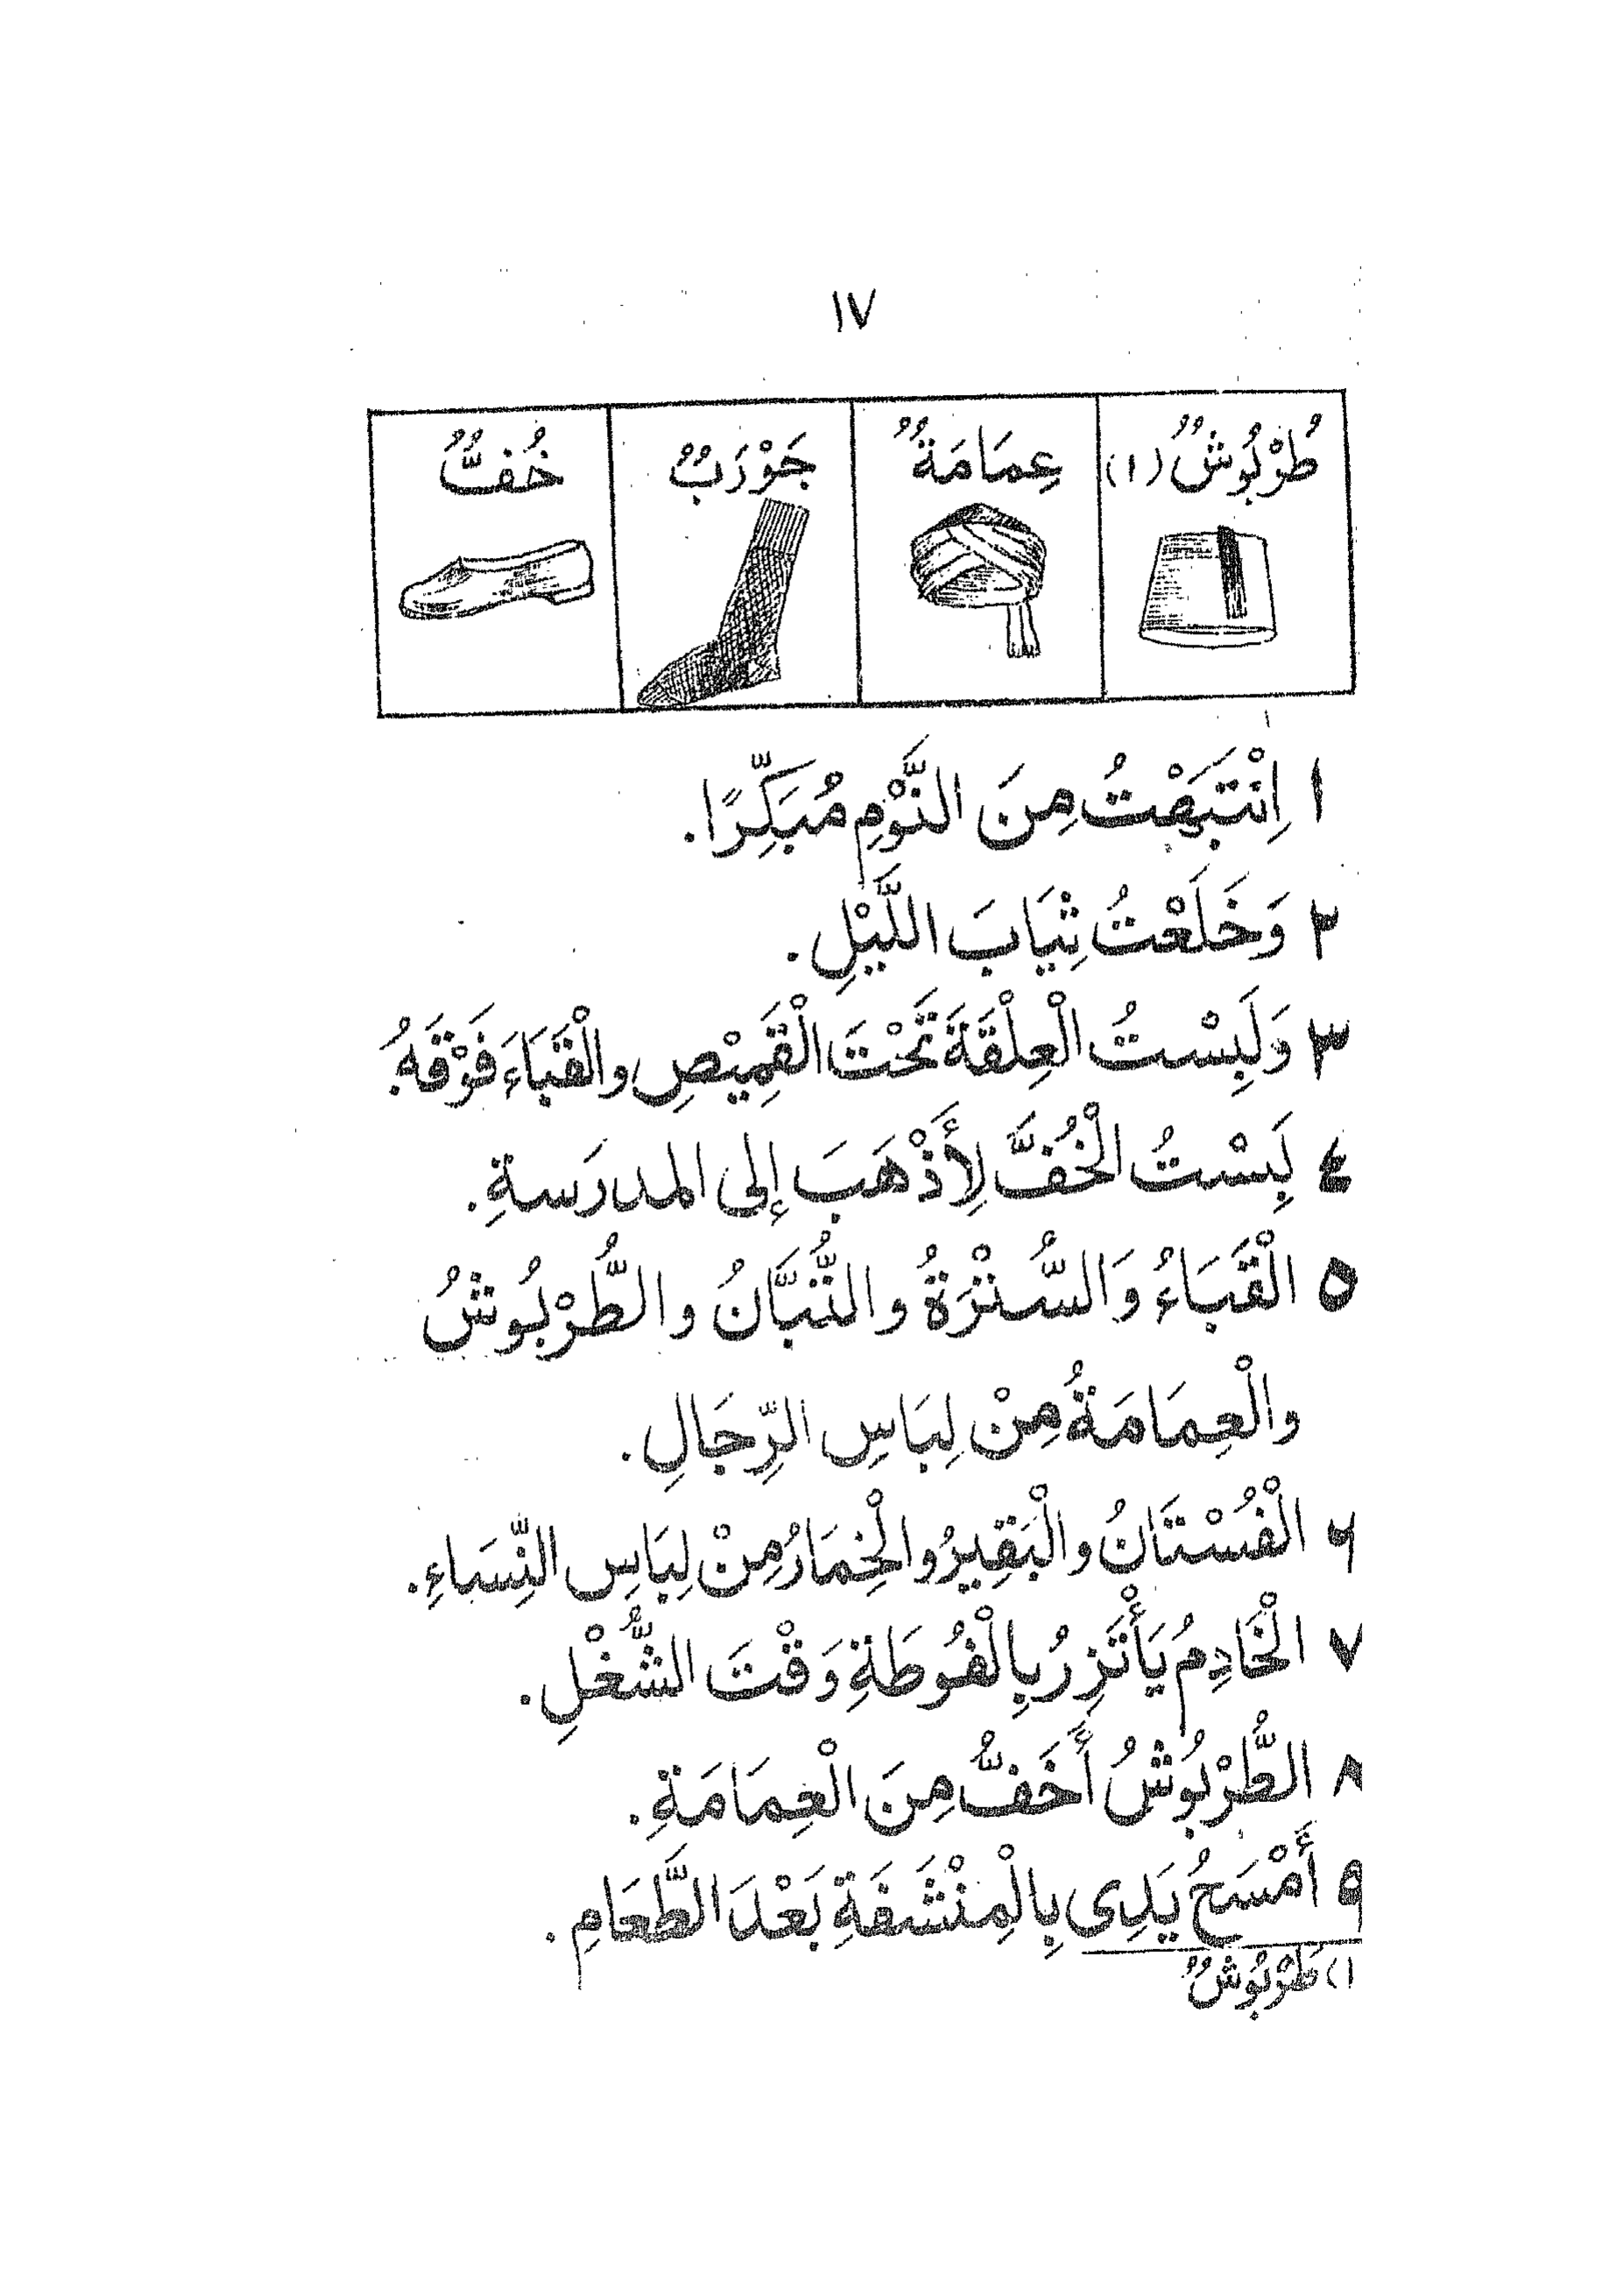 ١٧
طُرْبُوشٌ (١) عِمَامَةٌ جَوْرَبٌ خُفٌّ
١ اِنْتَبَهْتُ مِنَ النَّوْمِ مُبَكِّرًا.
٢ وَخَلَعْتُ ثِيَابَ اللَّيْلِ.
٣ وَلَبِسْتُ الْعِلْقَةَ تَحْتَ الْقَمِيْصِ والْقَبَاءَ فَوْقَهُ.
٤ لَبِسْتُ الْخُفَّ لِأَذْهَبَ إِلى المدرَسةِ.
٥ الْقَبَاءُ وَالسُّتْرَةُ والتُّبَّانُ والطُّرْبُوشُ
والْعِمَامَةُ مِنْ لِبَاسِ الرِّجَالِ.
٦ الْفُسْتَانُ والْبَقِيرُ والْخِمَارُ مِنْ لِبَاسِ النِّسَاءِ.
٧ الْخَادِمُ يَأْتَزِرُ بِالْفُوطَةِ وَقْتَ الشُّغْلِ.
٨ الطَّرْبُوشُ أَخَفُّ مِنَ الْعِمَامَةِ.
٩ أَمْسَحُ يَدِى بِالْمِنْشَفَةِ بَعْدَ الطَّعَامِ.
١) طَرْبُوشٌ